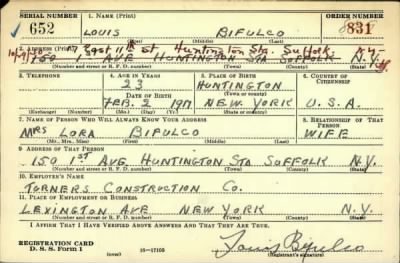 SERIAL NUMBER 1. NAME (Print) ORDER NUMBER
652 LOUIS BIFULCO 831
(First) (Middle) (Last)
2. ADDRESS (Print) 7 East 11th St. Huntington Sta. Suffolk N.Y.
150 1ST AVE HUNTINGTON STA SUFFOLK N.Y.
(Number and street or R. F. D. number) (Town) (County) (State)
3. TELEPHONE 4. AGE IN YEARS 5. PLACE OF BIRTH 6. COUNTRY OF CITIZENSHIP
23 HUNTINGTON
DATE OF BIRTH (Town or county)
FEB. 2 1917 NEW YORK U.S.A.
(Exchange) (Number) (Mo.) (Day) (Yr.) (State or country)
7. NAME OF PERSON WHO WILL ALWAYS KNOW YOUR ADDRESS 8. RELATIONSHIP OF THAT PERSON
MRS LORA BIFULCO WIFE
(Mr., Mrs., Miss) (First) (Middle) (Last)
9. ADDRESS OF THAT PERSON
150 1ST AVE HUNTINGTON STA SUFFOLK N.Y.
(Number and street or R. F. D. number) (Town) (County) (State)
10. EMPLOYER'S NAME
TURNERS CONSTRUCTION CO.
11. PLACE OF EMPLOYMENT OR BUSINESS
LEXINGTON AVE NEW YORK N.Y.
(Number and street or R. F. D. number) (Town) (County) (State)
I AFFIRM THAT I HAVE VERIFIED ABOVE ANSWERS AND THAT THEY ARE TRUE.
REGISTRATION CARD
D. S. S. Form 1 (over) 16—17105 Louis Bifulco
(Registrant's signature)